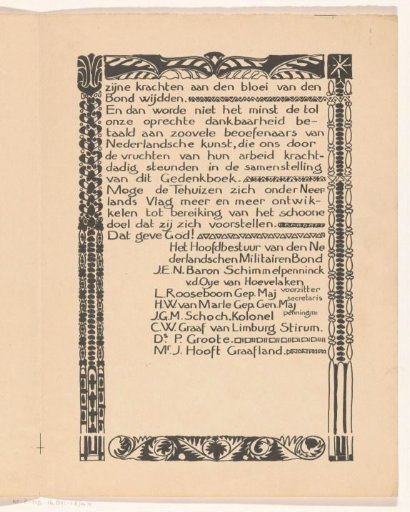 zijne krachten aan den bloei van den
Bond wijdden.
En dan worde niet het minst de tol
onze oprechte dankbaarheid be-
taald aan zoovele beoefenaars van
Nederlandsche kunst, die ons door
de vruchten van hun arbeid kracht-
dadig steunden in de samenstelling
van dit Gedenkboek.
Moge de Tehuizen zich onder Neer
lands Vlag meer en meer ontwik-
kelen tot bereiking van het schoone
doel dat zij zich voorstellen.
Dat geve God!
Het Hoofdbestuur van den Ne
derlandschen Militairen Bond
J.E.N. Baron Schimmelpenninck
v.d. Oye van Hoevelaken
voorzitter
L. Rooseboom Gep. Maj
secretaris
H.W. van Marle Gep. Gen. Maj
penningm
J.G.M. Schoch. Kolonel
C.W. Graaf van Limburg Stirum.
Ds. P. Groote.
Mr. J. Hooft Graafland.